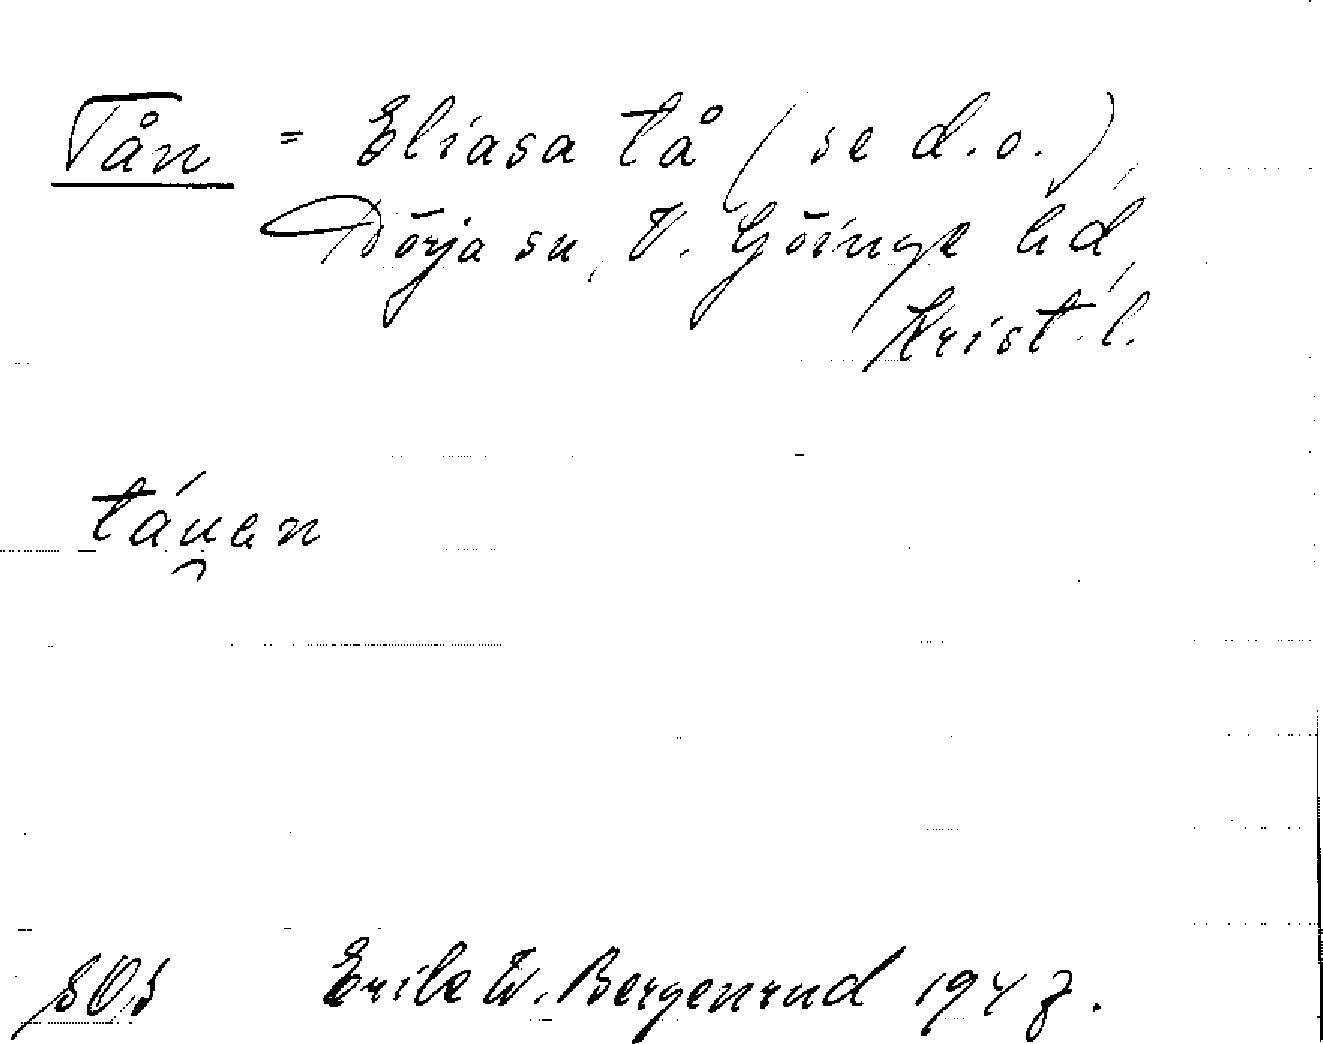 Tån = Eliasa tå (se d.o.),
Dörja sn, V. Göinge hd,
Krist. l.
Erik W. Bergenrud 1947.